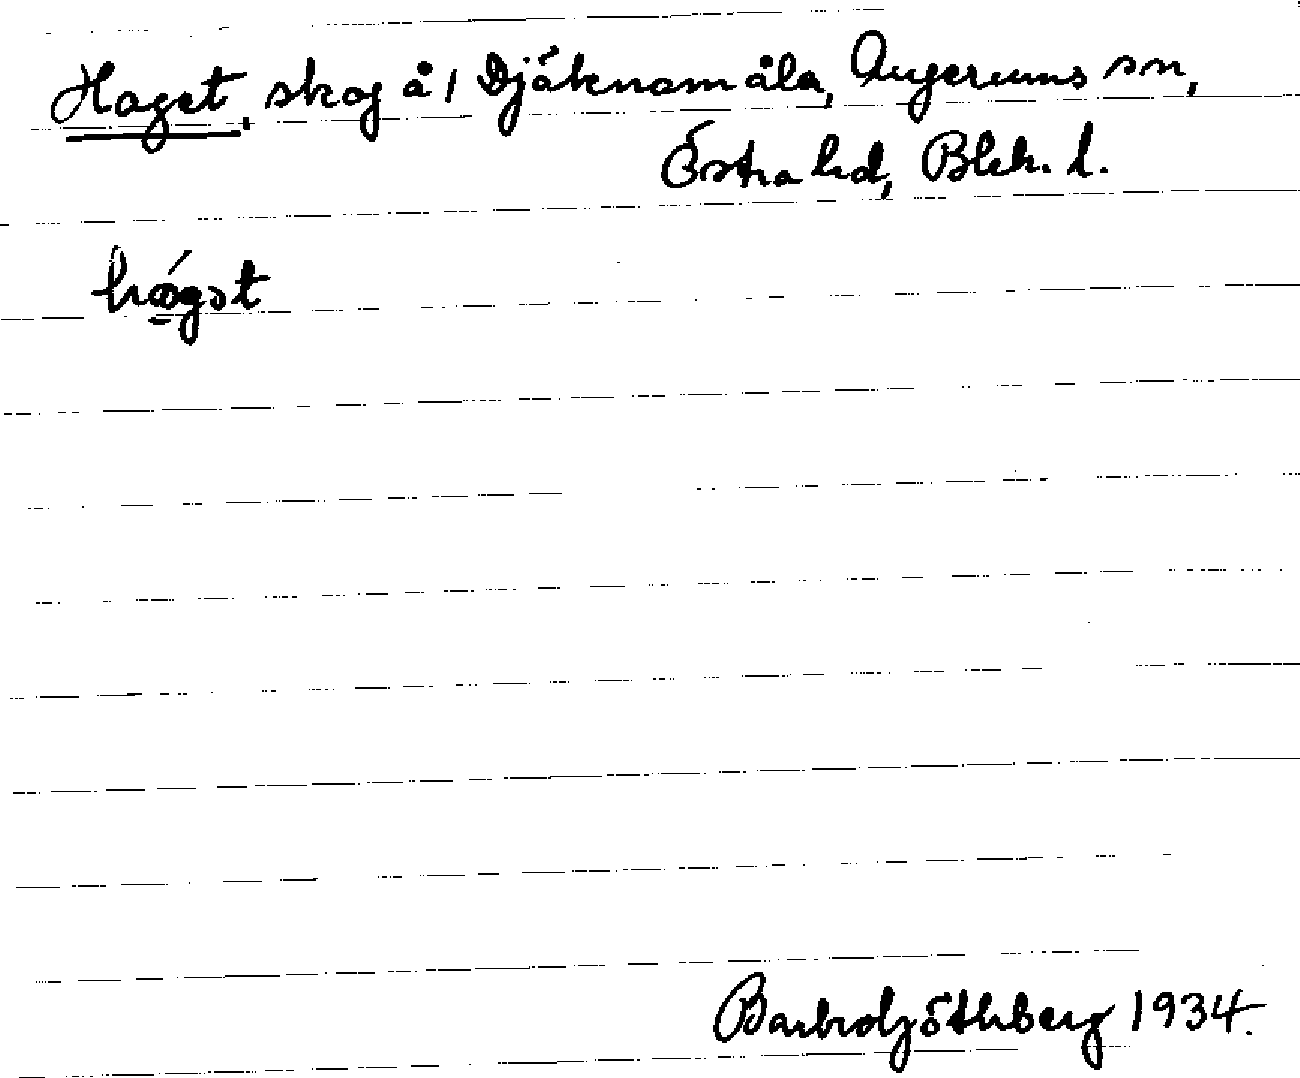 Haget, skog å 1 Djäknamåla, Augerums sn,
Östra hd, Blek. l.
Barbro Jöthberg 1934.